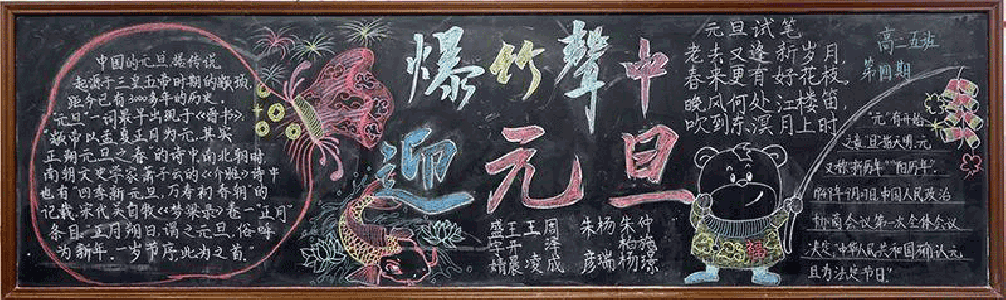 中国的元旦据传说
起源于三皇五帝时期的颛顼,
距今已有3000多年的历史,
"元旦"一词最早出现于《晋书》.
"颛帝以孟夏正月为元,其实
正朔元旦之春"的诗中南北朝时
南朝文史学家萧子云的《介雅》诗中
也有"四季新元旦,万寿初春朝"的
记载.宋代吴自牧《梦梁录》卷一"正月"
条目:"正月朔日,谓之元旦,俗呼
为新年.一岁节序此为之首.
爆竹聲中
迎元旦
元旦试笔
老去又逢新岁月,
春来更有好花枝,
晚风何处江楼笛,
吹到东溟月上时
高一五班
第四期
"元"有开始、
之意,旦指天明,元
又称"新历年""阳历年".
中国人民政治
协商会议第一次全体会议
决定,"中华人民共和国确认元
旦为法定节日."
福